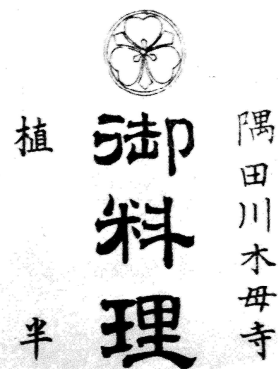 隅田川木母寺
御料理
植半